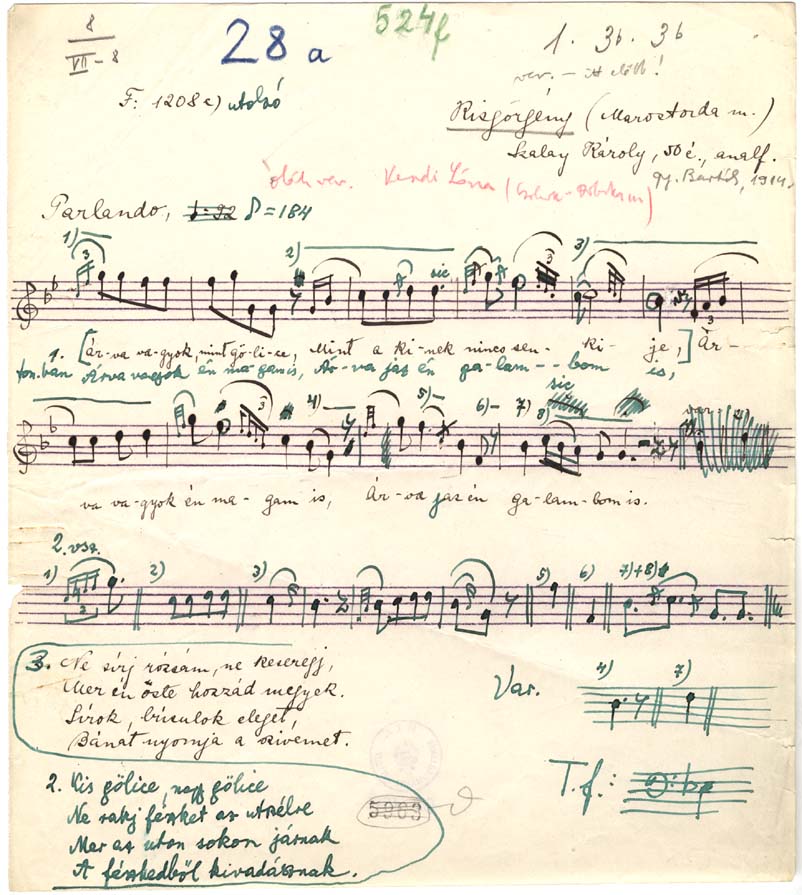 8
VII-8
28 a
524f
1. 3b. 3b
ver. – itt előtt!
F: 1208e) utolsó
Kisgörgény (Marostorda m.)
Szalay Károly, 50 é., analf.
gy. Bartók, 1914.
ver. Kendi
Parlando, ♪=184
1) 3 2) sic 3) 3
1. [Ár-va va-gyok, mint gö-li-ce, Mint a ki-nek nincs sen-ki-je,] Ár-
Árva vagyok én ma-gam is, Ár-va jaz én ga-la-m--bom is,
3 4) 5) 6) 7) 8) sic var.
va va-gyok én ma-gam is, Ár-va jaz én ga-lam-bom is.
2. vsz.
1) 2) 3) 5) 6) 7)+8)
3. Ne sírj rózsám, ne keseregj,
Mer én öste hozzád megyek.
Sírok, búsulok eleget,
Bánat nyomja a szivemet.
Var. 4) 7)
T.f.:
2. Kis gölice, nagy gölice
Ne rakj fészket az utszélre
Mer az uton sokon járnak
A fészkedből kivadásznak.
5903